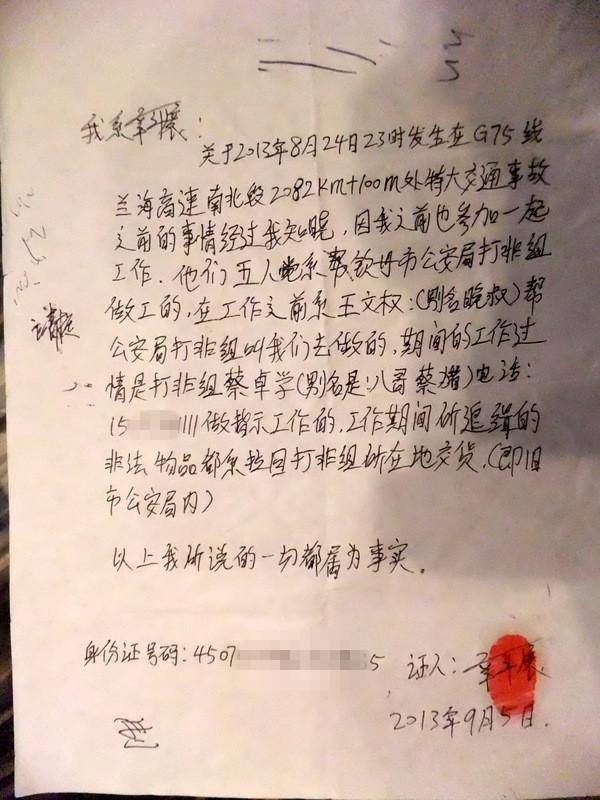 我系
关于2013年8月24日23时发生在G75线
兰海高速南北段2082Km+100m处特大交通事故
之前的事情经过我知晓，因我之前也参加一起
工作．他们五人是系帮钦州市公安局打非组
做工的，在工作之前系王文权：（别名晚叔）帮
公安局打非组叫我们去做的，期间的工作过
情是打非组蔡卓学（别名是：八哥蔡猪）电话：
15 1111做指示工作的，工作期间所追缉的
非法物品都系拉回打非组所在地交货，（即旧
市公安局内）
以上我所说的一切都属为事实。
身份证号码：4507 5 证人：
2013年9月5日．